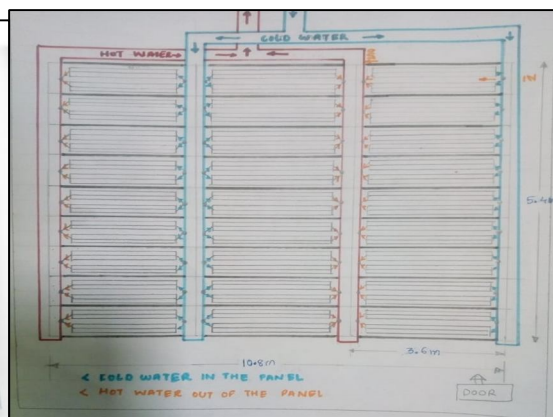 COLD WATER
HOT WATER
IN
5.4M
10.8m
3.6m
< COLD WATER IN THE PANEL
< HOT WATER OUT OF THE PANEL
DOOR